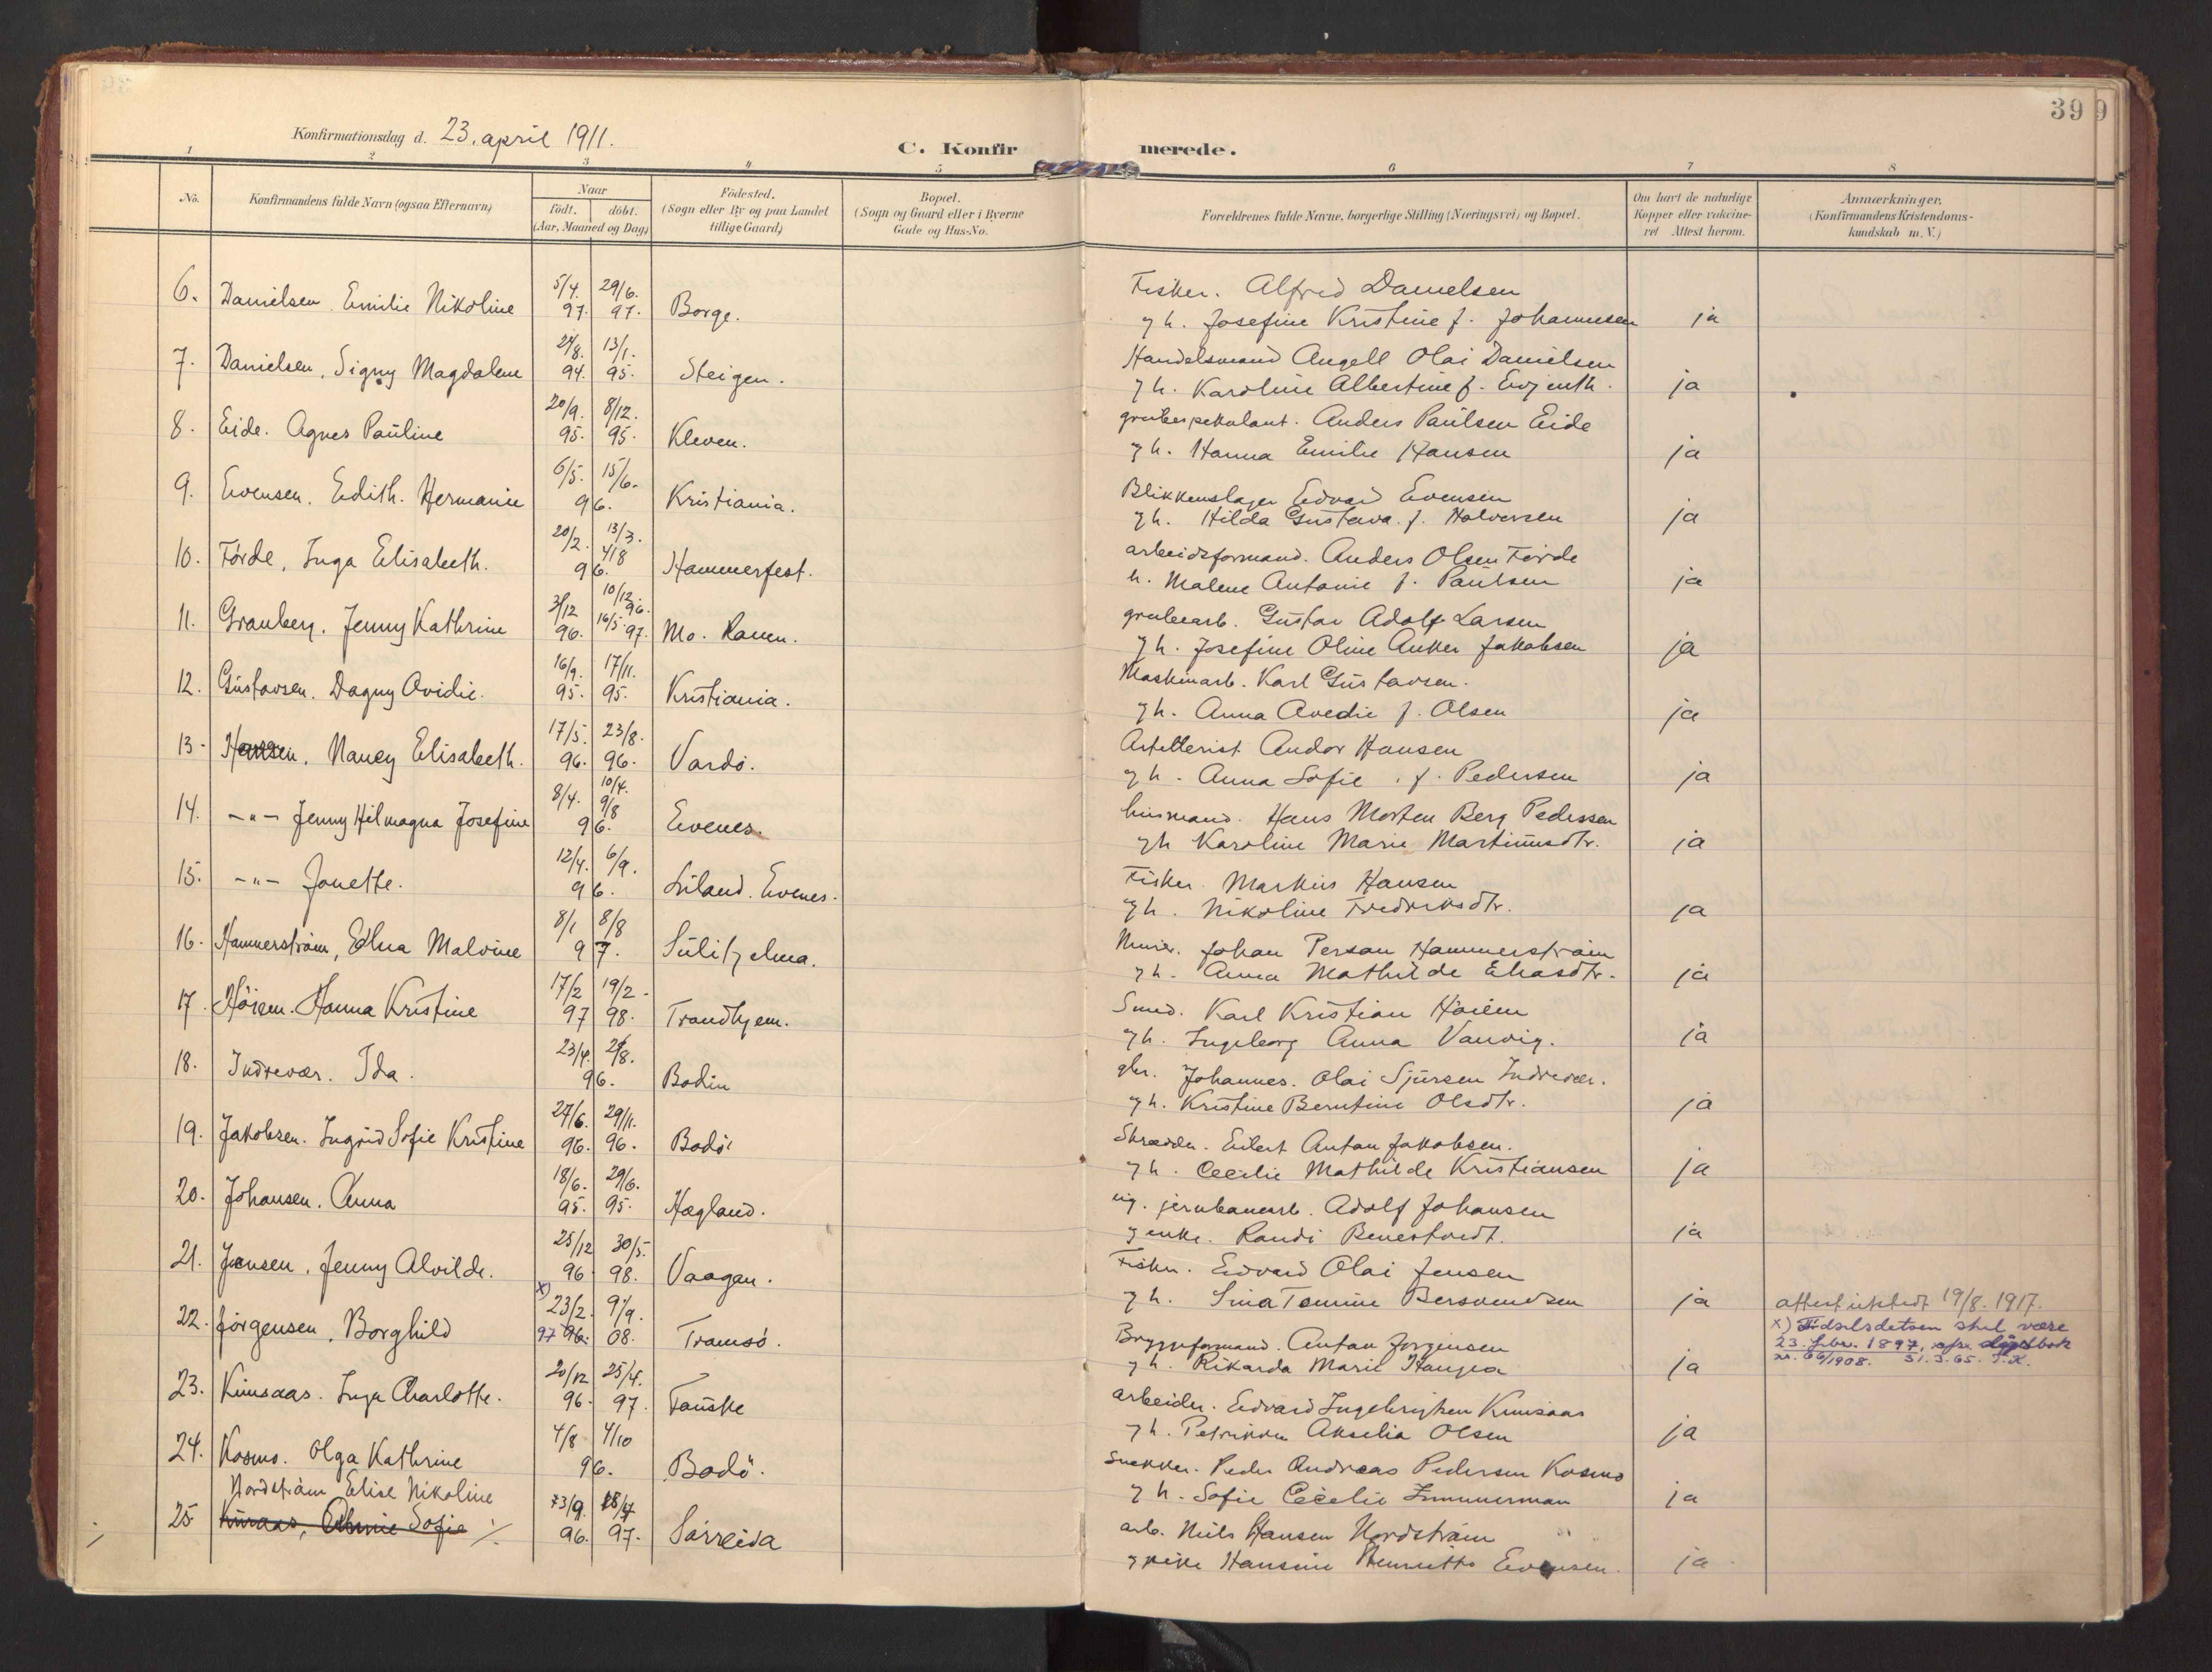 39 9
Konfirmationsdag d. 23. april 1911.
C. Konfir merede.
1 2 3 4 5 6 7 8
No. Konfirmandens fulde Navn (ogsaa Efternavn) Naar født. døbt. (Aar, Maaned og Dag)
Fødested. (Sogn eller By og paa Landet tillige Gaard)
Bopæl. (Sogn og Gaard eller i Byerne Gade og Hus-No.
Forældrenes fulde Navne, borgerlige Stilling (Næringsvei) og Bopæl.
Om havt de naturlige Kopper eller vaksine- ret Attest herom.
Anmærkninger. (Konfirmandens Kristendoms- kundskab m. V.)
6. Danielsen. Emilie Nikoline 5/4. 97. 29/6. 97. Borge.
Fisker. Alfred Danielsen
g h. Josefine Kristine f. Johannesen ja
7. Danielsen, Signy Magdalene 24/8. 94. 13/1. 95. Steigen.
Handelsmand Angell Olai Danielsen
g h. Karoline Albertine f. Evjenth. ja
8. Eide. Agnes Pauline 20/9. 95. 8/12. 95. Kleven.
grubespekulant. Anders Paulsen Eide
g h. Hanna Emilie Hansen ja
9. Evensen. Edith. Hermanie 6/5. 15/6. 96. Kristiania.
Blikkenslager Edvard Evensen
g h. Hilda Gustava. f. Halvorsen ja
10. Förde, Inga Elisabeth. 20/2. 13/3. 4/8 96. Hammerfest.
arbeidsformand. Anders Olsen Förde
h. Malene Antonie f. Paulsen ja
11. Granberg. Jenny Kathrine 3/12 96. 10/12. 96. 14/5. 97. Mo. Ranen.
grubearb. Gustav Adolf Larsen
g h. Josefine Oline Anker Jakobsen ja
12. Gustavsen. Dagny Ovidie. 16/9. 95. 17/11. 95. Kristiania.
Maskinarb. Karl Gustavsen.
g h. Anna Avedie f. Olsen ja
13. Hansen, Nancy Elisabeth. 17/5. 96. 23/8. 96. Vardö.
Artillerist Andor Hansen
g h. Anna Sofie. f. Pedersen ja
14. -"- Jenny Hilmagna Josefine 8/4. 10/4. 9/8 96. Evenes.
husmand. Hans Morten Berg Pedersen
g h Karoline Marie Martinusdtr. ja
15. -"- Jonette. 12/4. 6/9. 96. Liland. Evenes.
Fisker. Markus Hansen
g h. Nikoline Fredriksdtr. ja
16. Hammerström, Edna Malvine 8/1 8/8 97. Sulitjelma.
Murer. Johan Persson Hammerström
g h. Anna Mathilde Eliasdtr. ja
17. Höiem. Hanna Kristine 17/2 97 19/2. 98. Trondhjem.
Smed. Karl Kristian Höiem
g h. Ingeborg Anna Vanvig. ja
18. Indrevær. Ida. 23/4. 2/8. 96. Bodin
gbr. Johannes. Olai Sjursen Indrevær.
g h. Kristine Berntine Olsdtr. ja
19. Jakobsen. Ingrid Sofie Kristine 27/6. 96. 29/11. 96. Bodö
Skrædder. Eilert Anton Jakobsen.
g h. Cecilie Mathilde Kristiansen ja
20. Johansen. Anna 18/6. 95. 29/6. 95. Hægland.
jernbanearb. Adolf Johansen
g enke. Randi Benestvedt. ja
21. Jensen, Jenny Alvilde. 25/12 96 30/5. 98. Vaagan.
Fisker. Edvard Olai Jensen
g h. Sina Tomine Bersvendsen ja
22. Jörgensen, Borghild x) 23/2. 97 96. 9/9. 08. Tromsö.
Bryggeformand. Anton Jorgensen
g h. Rikarda Marie Haugea ja
attest utstedt 19/8. 1917.
x) Fødselsdatoen skal være
23. febr. 1897, efr. dåpsbok
nr. 66/1908. 31.3.65.
23. Kinsaas. Inga Charlotte. 20/12 96. 25/4. 97. Fauske
arbeider. Edvard Ingebrigtsen Kinsaas
g h. Petrikke Akselia Olsen ja
24. Kosmo. Olga Kathrine 4/8 4/10 96. Bodö.
Snekker. Peder Andreas Pedersen Kosmo
g h. Sofie Cecelie Zimmerman ja
Nordström Elise Nikoline
25 Sofie 23/9. 96. 18/4 97. Sörreisa
arb. Nils Hansen Nordström
g h. Hansine Henriette Evensen. ja